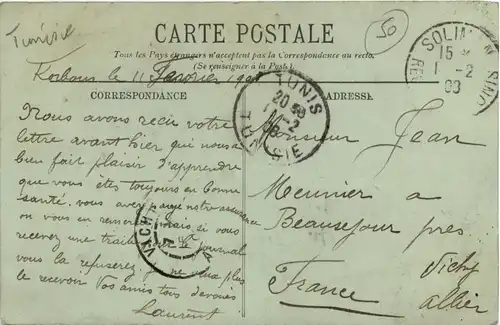 Tunisie
50
CARTE POSTALE
Tous les Pays étrangers n'acceptent pas la Correspondance au recto.
(Se renseigner à la Poste)
Korbous le 11 Janvier 1908
CORRESPONDANCE
ADRESSE
Nous avons reçu votre
lettre avant hier qui nous a
bien fait plaisir d'apprendre
que vous êtes toujours en bonne
santé, vous avez payé notre assurance
on vous en remercie, mais si vous
recevez une traite sur le journal
vous la refuserez je ne veux plus
le recevoir Vos amis tous dévoués
Laurent
Monsieur Jean
Meunier a
Beausejour près
Vichy
France allier
TUNIS
20
TUNISIE
SOLIMAN
15
1-2
08
VACH